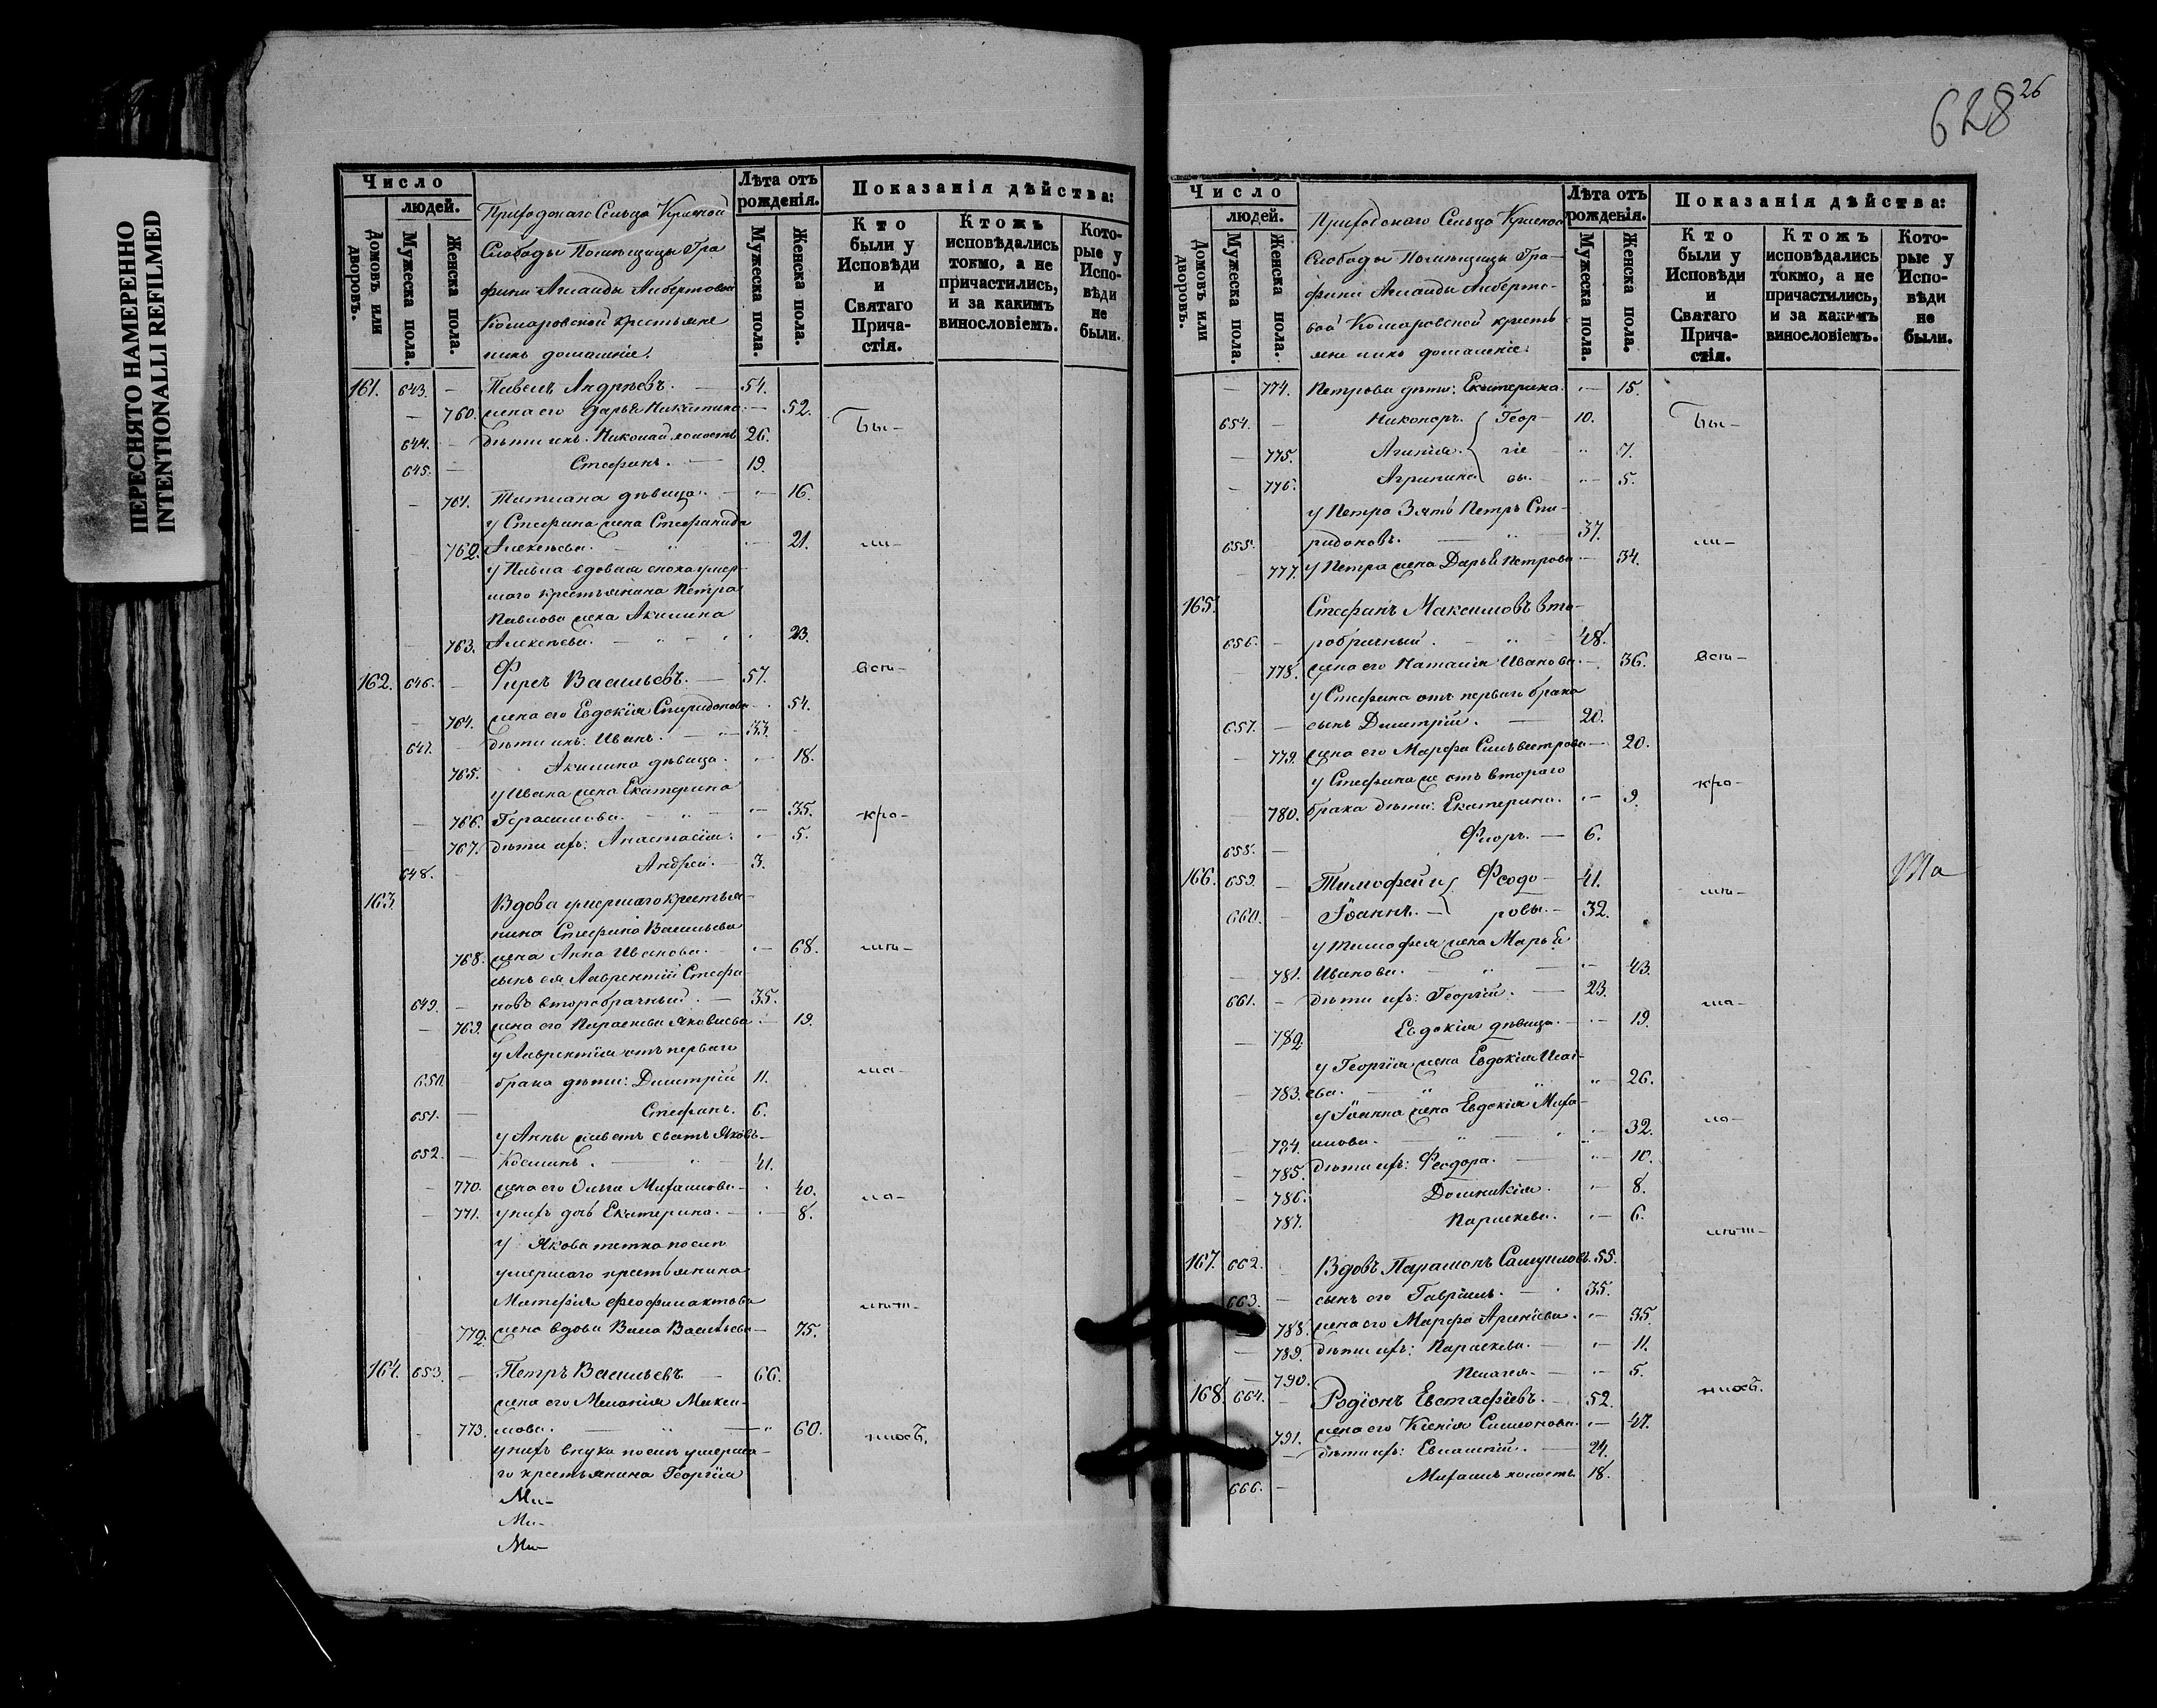 ПЕРЕСНЯТО НАМЕРЕННО
INTENTIONALLI REFILMED
Число
людей.
Домовъ или дворовъ.
Мужеска пола.
Женска пола.
Приходскаго Сельца Красной
Слободы Помѣщицы Гра
фини Аделаиды Албертовой
Комаровской крестьяне
ихъ домашніе.
Лѣта отъ рожденія.
Мужеска пола.
Женска пола.
Показанія дѣйства:
Кто были у Исповѣди и Святаго Прича-стія.
Ктожъ исповѣдались токмо, а не причастились, и за какимъ винословіемъ.
Кото-рые у Испо-вѣди не были.
161. 643. — Павелъ Андреевъ. — 54.
— 760. жена его Дарья Никитина — 52.
Бы-
644. — дѣти ихъ: Николай холостъ 26.
645. — Стефанъ. — 19.
— 761. Татиана дѣвица. — 16.
у Стефана жена Стефанида
762. Алексѣева. — 21.
ли-
у Павла вдовая сноха умер-
шаго крестьянина Петра
Павлова жена Акилина
763. Алексѣева. — 23.
162. 646. — Фирсъ Васильевъ. — 57.
всп-
764. жена его Евдокія Спиридонова — 54.
647. — дѣти ихъ: Иванъ. — 33.
765. Акилина дѣвица. — 18.
у Ивана жена Екатерина
766. Герасимова. — 35.
кра-
767. дѣти ихъ: Анастасія. — 5.
648. — Андрей. — 3.
163. Вдова умершаго крестья-
нина Стефана Васильева
768. жена Анна Иванова. — 68.
сынъ ея Лаврентій Стефа
649. — новъ второбрачный. — 35.
— 769. жена его Параскева Яковлева — 19.
у Лаврентія отъ перваго
650. брака дѣти: Димитрій 11.
651. — Стефанъ. 6.
у Анны живетъ сватъ Яковъ
652. — Косминъ. — 41.
— 770. жена его Ольга Михаилова — 40.
— 771. у нихъ дочь Екатерина. — 8.
у Якова тетка посл
умершаго крестьянина
Матфія Феофилактова
772. жена вдова Васа Васильева — 75.
164. 653. — Петръ Васильевъ — 66.
жена его Меланія Макси-
773. мова. — 60.
у нихъ внука посл умерша-
го крестьянина Георгія
Ми-
Ми-
Ми-
628 26
Число
людей.
Домовъ или дворовъ.
Мужеска пола.
Женска пола.
Приходскаго Сельца Красной
Слободы Помѣщицы Гра-
фини Аделаиды Алберто-
вой Комаровской кресть
яне ихъ домашніе:
Лѣта отъ рожденія.
Мужеска пола.
Женска пола.
Показанія дѣйства:
Кто были у Исповѣди и Святаго Прича-стія.
Ктожъ исповѣдались токмо, а не причастились, и за какимъ винословіемъ.
Кото-рые у Испо-вѣди не были.
— 774. Петрова дѣти: Екатерина. — 15.
654. — Никоноръ. Геор- 10.
Бы-
— 775. гіе — 7.
— 776. Агрипина вы. — 5.
у Петра Зять Петръ Спи-
655. ридоновъ. — 37.
ли-
— 777. у Петра жена Дарья Петрова — 34.
165. Стефанъ Максимовъ вто-
656. — робрачный. — 48.
778. жена его Наталія Иванова. — 36.
всп-
у Стефана отъ перваго брака
657. — сынъ Димитрій. — 20.
— 779. жена его Марфа Сильвестрова — 20.
у Стефана же отъ втораго
780. брака дѣти: Екатерина. — 9.
кра-
658. — Флоръ. — 6.
166. 659. — Тимофей и Феодо- 41.
660. — Іоаннъ. — ровы. — 32.
у Тимофея жена Марья
— 781. Иванова. — 43.
661. — дѣти ихъ: Георгій. — 23.
— 782 Евдокія дѣвица. — 19.
у Георгія жена Евдокія
— 783. ева. — 26.
у Іоанна жена Евдокія Миха-
— 784. илова. — 32.
— 785. дѣти ихъ: Феодора. — 10.
— 786. Домникія. — 8.
— 787. Параскева. — 6.
167. 662. — Вдовъ Парамонъ Самуиловъ. 55.
663. — сынъ его Гавріилъ. — 35.
— 788. жена его Марфа — 35.
— 789. дѣти ихъ: Параскева. — 11.
— 790. Пелагея. — 5.
168. 664. — Родіонъ Евстафіевъ. — 52.
791. жена его Ксенія Симеонова. — 47.
— дѣти ихъ: Евлампій. — 24.
666. — Михаилъ холостъ 18.